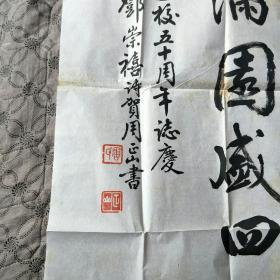 滿園盛四
校五十周年誌慶
鄧崇禧詩賀周正書